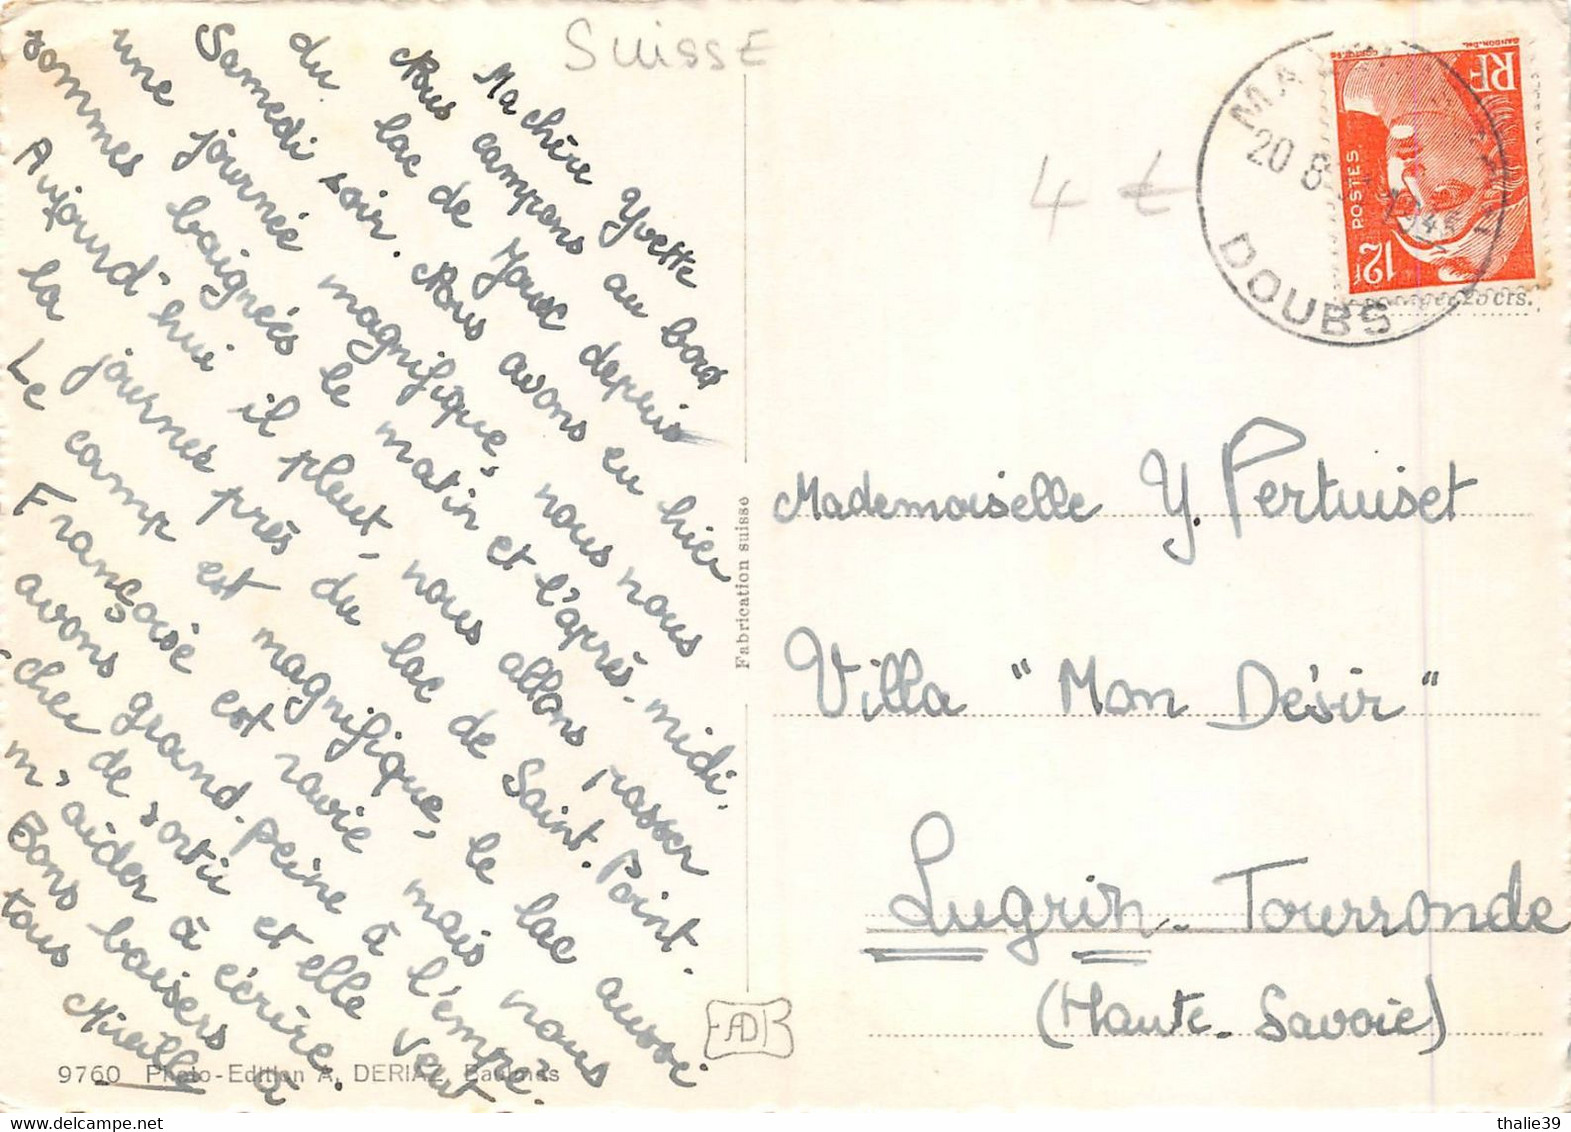 SuissE
Ma chère Yvette
Nous campons au bord
du lac de Joux depuis
Samedi soir. Nous avons eu hier
une journée magnifique, nous nous
sommes baignées le matin et l'après-midi.
Aujourd'hui il pleut, nous allons passer
la journée près du lac de Saint. Point.
Le camp est magnifique, le lac aussi
Françoise est ravie mais nous
avons grand-peine à l'empê-
cher de sortir et elle veut
m'aider à écrire.
Bons baisers à
tous Mireille
9760 Photo-Edition A. DERIAZ, Baulmes
Fabrication suisse
AD
4 €
20 8
DOUBS
RF
POSTES
12F
25 cts.
Mademoiselle Y. Pertuiset
Villa "Mon Désir"
Lugrin-Tourronde
(Haute-Savoie)
thalie39